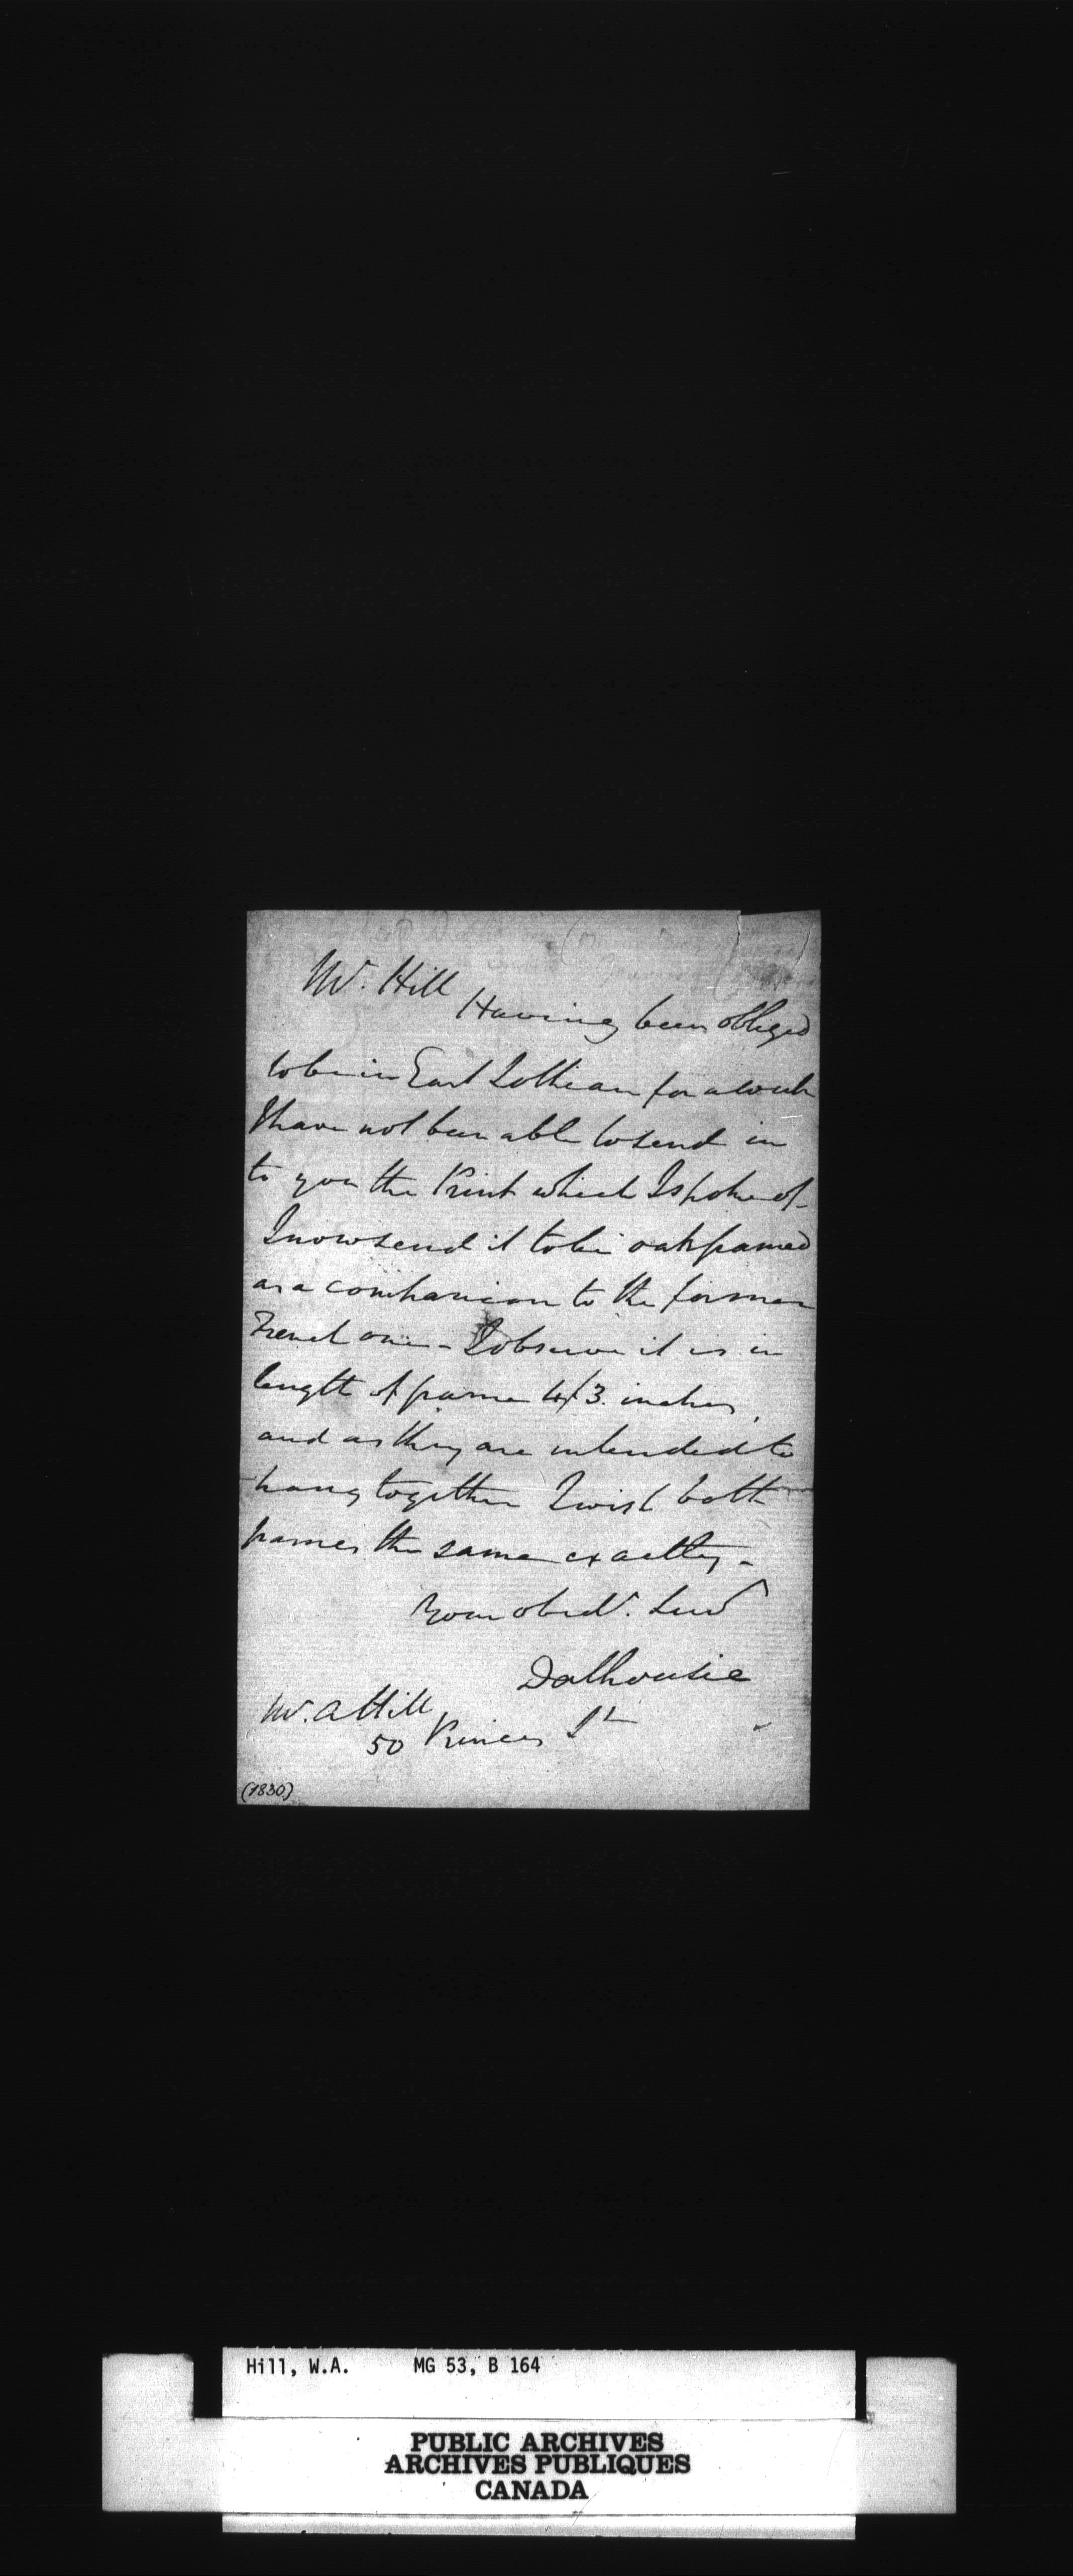 Mr. Hill
Having been obliged
to be in East Lothian for a week
I have not been able to send in
to you the Print which I spoke of -
I now send it to be oak framed
as a companion to the former
French one - I observe it is in
length of frame 4/3. inches
and as they are intended to
hang together I wish both
frames the same exactly -
Your obedt. Servt
Dalhousie
Mr. A Hill
50 Princes St
(1830)
Hill, W.A. MG 53, B 164
PUBLIC ARCHIVES
ARCHIVES PUBLIQUES
CANADA